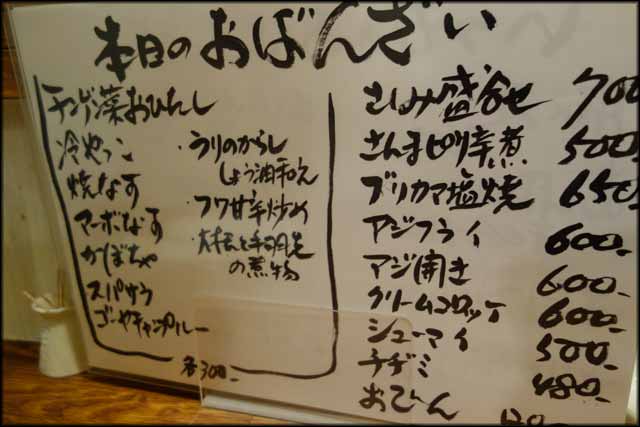 本日のおばんざい
チンゲン菜おひたし
冷やっこ
焼なす
マーボなす
かぼちゃ
スパサラ
ゴーヤチャンプルー
・うりのからし
しょう油和え
・フワ甘辛炒め
の煮物
各300-
さしみ盛合せ 700
さんまピリ辛煮 500-
ブリカマ塩焼 650-
アジフライ 600-
アジ開き 600-
クリームコロッケ 600-
シューマイ 500-
チヂミ 480-
おでん